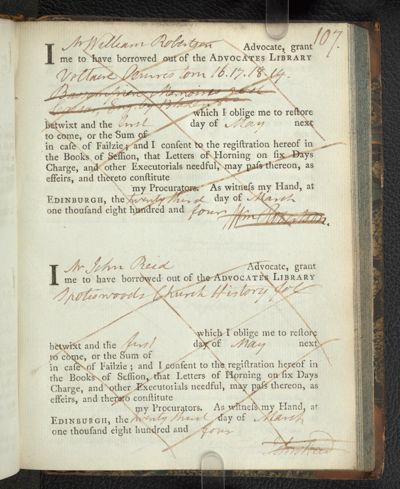 107.
I Mr William Robertson Advocate, grant
me to have borrowed out of the ADVOCATES LIBRARY
Voltaire Oeuvres tom 16.17.18.19.
which I oblige me to reſtore
betwixt and the first day of May next
to come, or the Sum of
in caſe of Failzie; and I conſent to the regiſtration hereof in
the Books of Seſſion, that Letters of Horning on ſix Days
Charge, and other Executorials needful, may paſs thereon, as
effeirs, and thereto conſtitute
my Procurators. As witneſs my Hand, at
EDINBURGH, the twenty third day of March
one thouſand eight hundred and four Wm Robertson.
I Mr John Reed Advocate, grant
me to have borrowed out of the ADVOCATES LIBRARY
Spotiswoods Church History fol.
which I oblige me to reſtore
betwixt and the first day of May next
to come, or the Sum of
in caſe of Failzie; and I conſent to the regiſtration hereof in
the Books of Seſſion, that Letters of Horning on ſix Days
Charge, and other Executorials needful, may paſs thereon, as
effeirs, and thereto conſtitute
my Procurators. As witneſs my Hand, at
EDINBURGH, the twenty third day of March
one thouſand eight hundred and four
John Reed